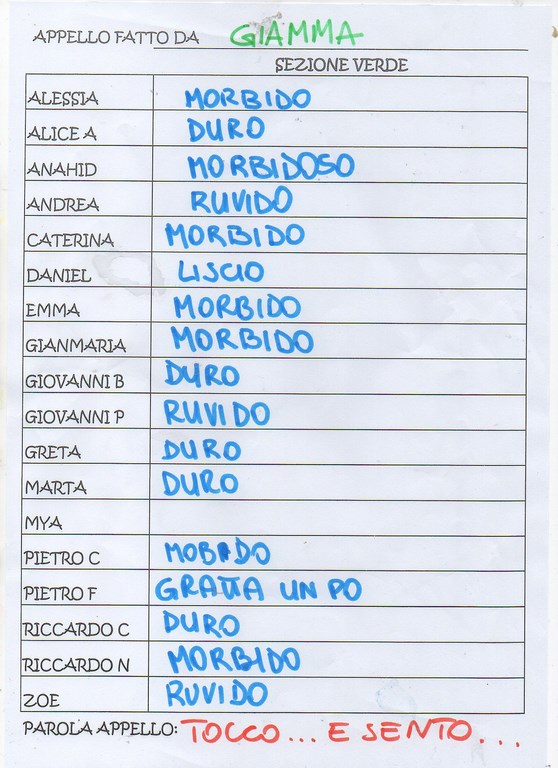 APPELLO FATTO DA GIAMMA
SEZIONE VERDE
ALESSIA MORBIDO
ALICE A DURO
ANAHID MORBIDOSO
ANDREA RUVIDO
CATERINA MORBIDO
DANIEL LISCIO
EMMA MORBIDO
GIANMARIA MORBIDO
GIOVANNI B DURO
GIOVANNI P RUVIDO
GRETA DURO
MARTA DURO
MYA
PIETRO C MOBIDO
PIETRO F GRATTA UN PO
RICCARDO C DURO
RICCARDO N MORBIDO
ZOE RUVIDO
PAROLA APPELLO: TOCCO... E SENTO...